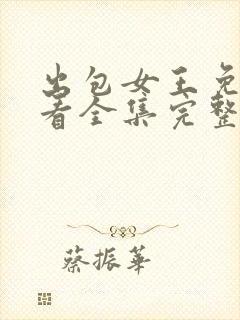 出包女王免
看全集完整
蔡振華